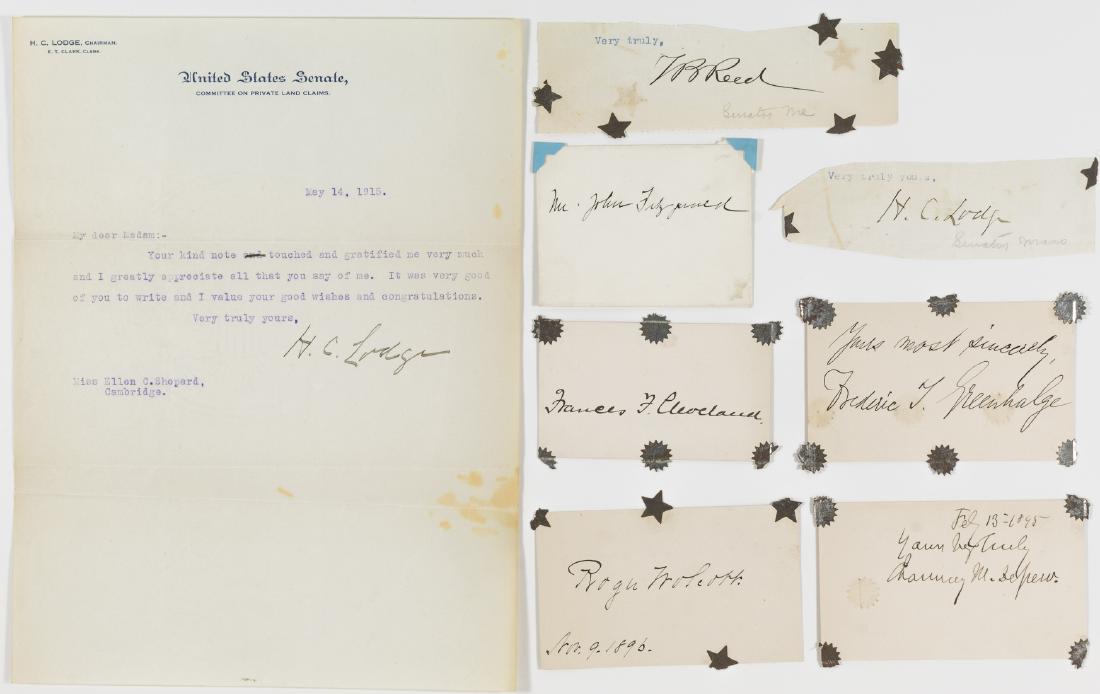 H. C. LODGE, CHAIRMAN.
E. T. CLARK, CLERK.
United States Senate,
COMMITTEE ON PRIVATE LAND CLAIMS.
May 14, 1915.
My dear Madam:-
Your kind note and touched and gratified me very much
and I greatly appreciate all that you say of me. It was very good
of you to write and I value your good wishes and congratulations.
Very truly yours,
H. C. Lodge
Miss Ellen C.Shepard,
Cambridge.
Very truly,
T B Reed
Senator Me
Mr. John Fitzgerald
Very truly yours,
H. C. Lodge
Senator Mass
Frances F. Cleveland.
Yours most sincerely,
Frederic T. Greenhalge
Roger Wolcott.
Nov. 9. 1896.
Feb 13-1895
Yours Very Truly
Chauncey M. Depew.